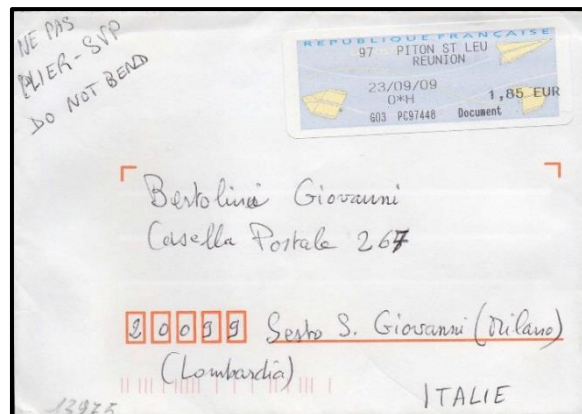 NE PAS
PLIER-SVP
DO NOT BEND
REPUBLIQUE FRANÇAISE
97 PITON ST LEU
REUNION
23/09/09
0*H
1,85 EUR
G03 PC97448 Document
Bertolini Giovanni
Casella Postale 267
20099 Sesto S. Giovanni (Milano)
(Lombardia)
ITALIE